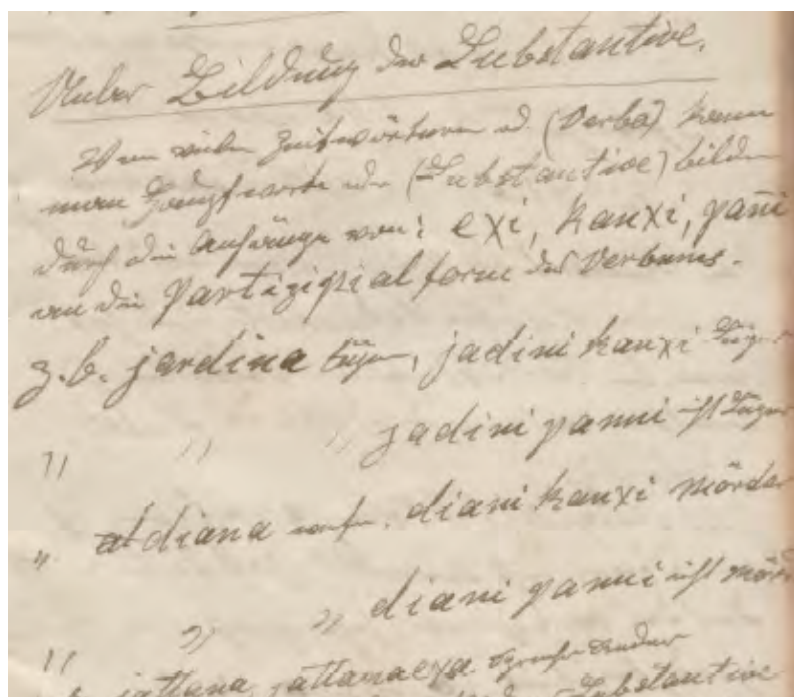 Ueber Bildung der Substantive.
Von vielen Zeitwörtern od. (Verba) kann
man Hauptworte oder (Substantive) bilden
durch die Anhänge von: exi, kanxi, panni
an die Partizipialform des Verbums.
z.b. jardina lügen, jadini kanxi Lügner
" " " jadini panni nicht Lügner
" diana , diani kanxi Mörder
" " " diani panni nicht Mörd
jattana, attanaexa
Substantive